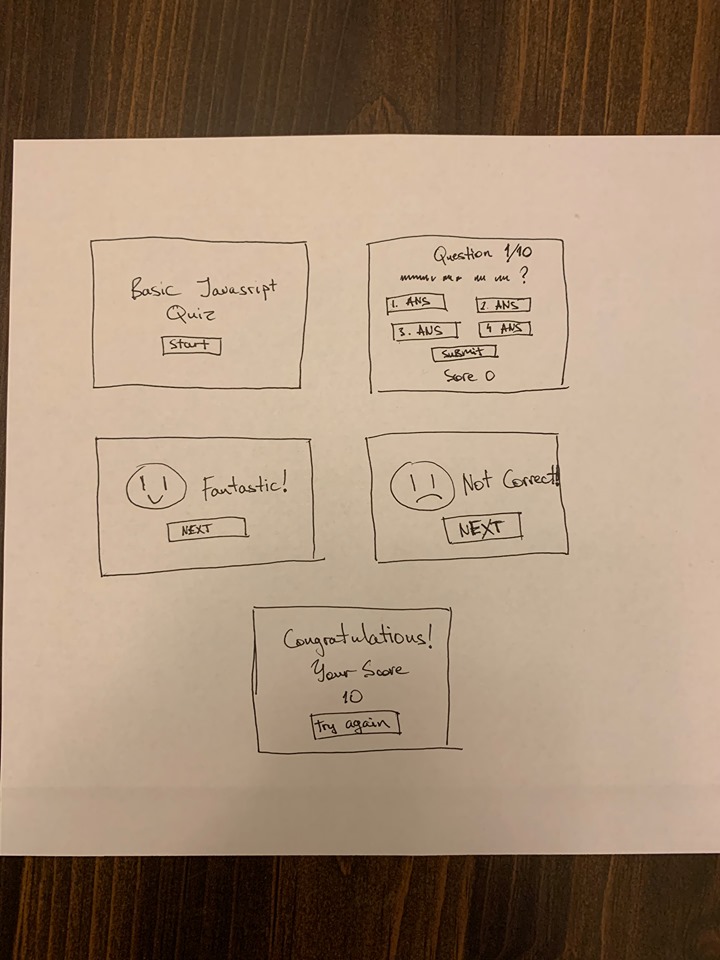 Basic Javasript
Quiz
Start
Question 1/10
?
1. ANS
2. ANS
3. ANS
4 ANS
Submit
Score 0
Fantastic!
NEXT
Not Correct!
NEXT
Congratulations!
Your Score
10
try again